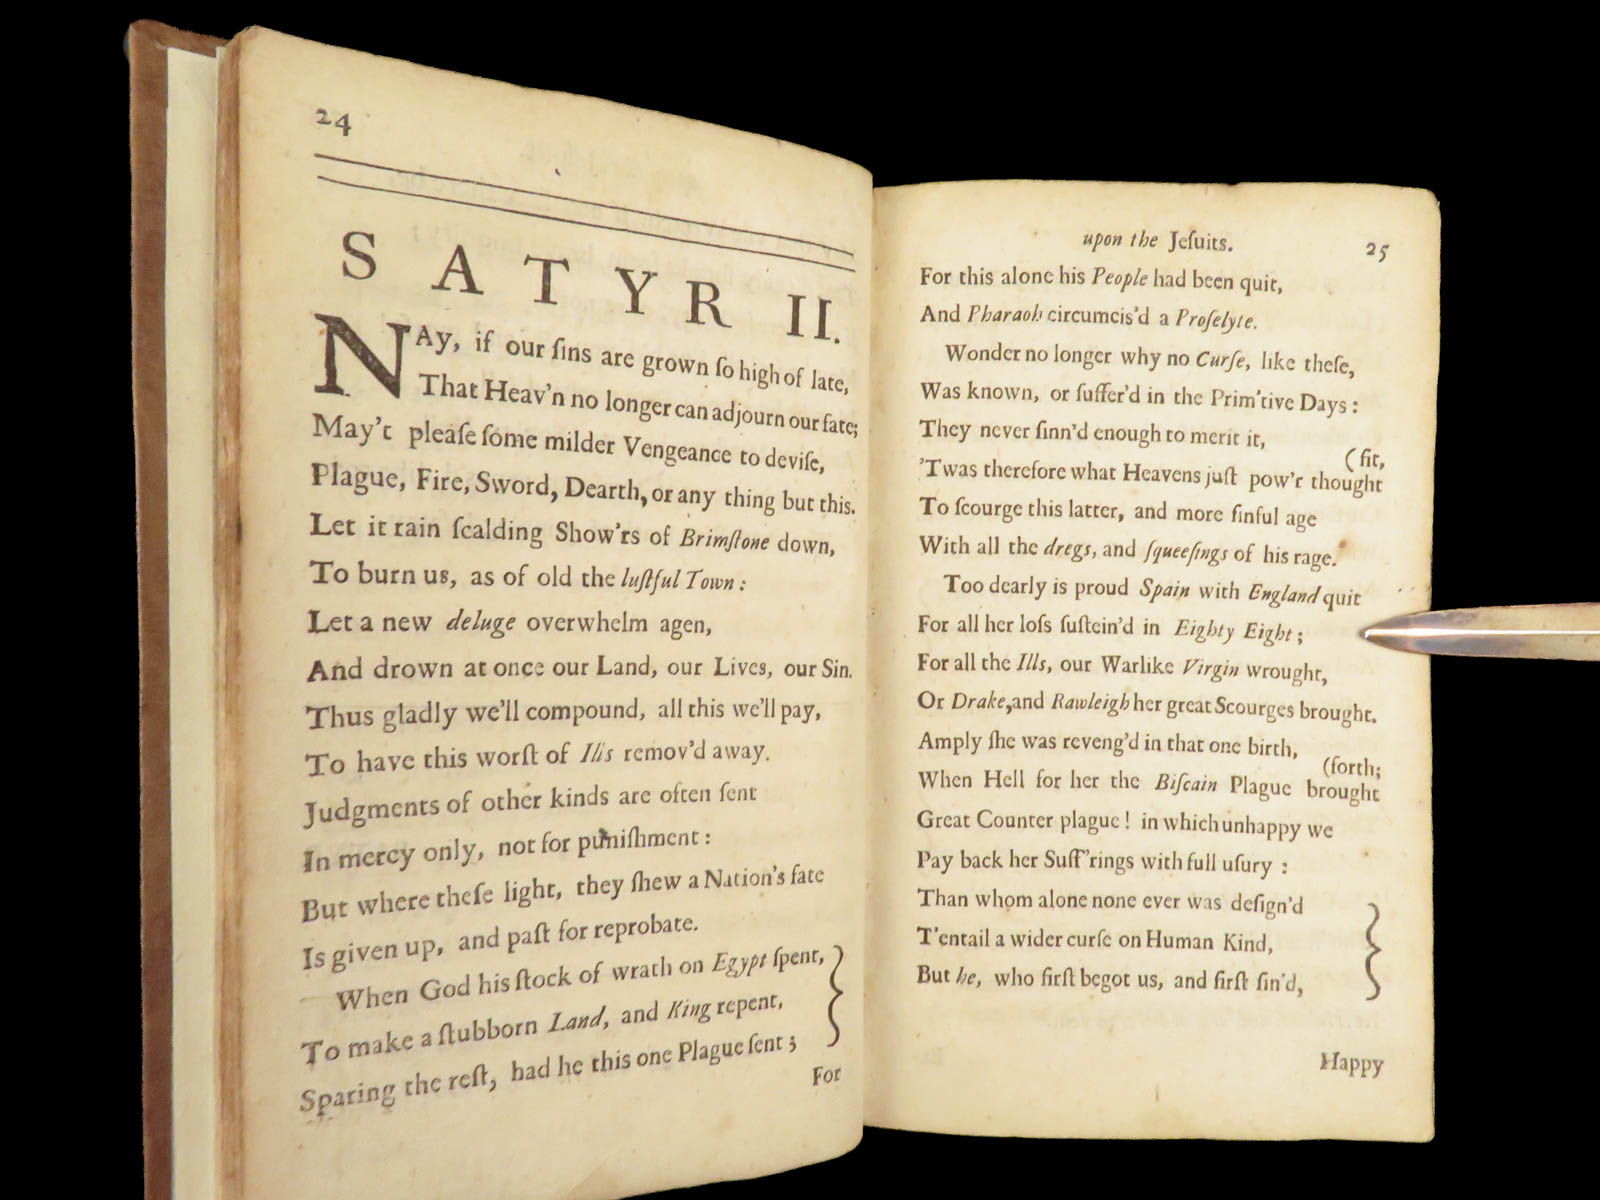 24
SATYR II.
NAy, if our ſins are grown ſo high of late,
That Heav'n no longer can adjourn our fate;
May't pleaſe ſome milder Vengeance to deviſe,
Plague, Fire, Sword, Dearth, or any thing but this.
Let it rain ſcalding Show'rs of Brimſtone down,
To burn us, as of old the luſtful Town:
Let a new deluge overwhelm agen,
And drown at once our Land, our Lives, our Sin.
Thus gladly we'll compound, all this we'll pay,
To have this worſt of Ills remov'd away.
Judgments of other kinds are often ſent
In mercy only, not for puniſhment:
But where theſe light, they ſhew a Nation's fate
Is given up, and paſt for reprobate.
When God his ſtock of wrath on Egypt ſpent,
To make a ſtubborn Land, and King repent,
Sparing the reſt, had he this one Plague ſent;
For
upon the Jeſuits.
25
For this alone his People had been quit,
And Pharaoh circumcis'd a Proſelyte.
Wonder no longer why no Curſe, like theſe,
Was known, or ſuffer'd in the Prim'tive Days:
They never ſinn'd enough to merit it,
(fit,
'Twas therefore what Heavens juſt pow'r thought
To ſcourge this latter, and more ſinful age
With all the dregs, and ſqueeſings of his rage.
Too dearly is proud Spain with England quit
For all her loſs ſuſtein'd in Eighty Eight;
For all the Ills, our Warlike Virgin wrought,
Or Drake, and Rawleigh her great Scourges brought.
Amply ſhe was reveng'd in that one birth,
(forth;
When Hell for her the Biſcain Plague brought
Great Counter plague! in which unhappy we
Pay back her Suff'rings with full uſury:
Than whom alone none ever was deſign'd
T'entail a wider curſe on Human Kind,
But he, who firſt begot us, and firſt ſin'd,
Happy